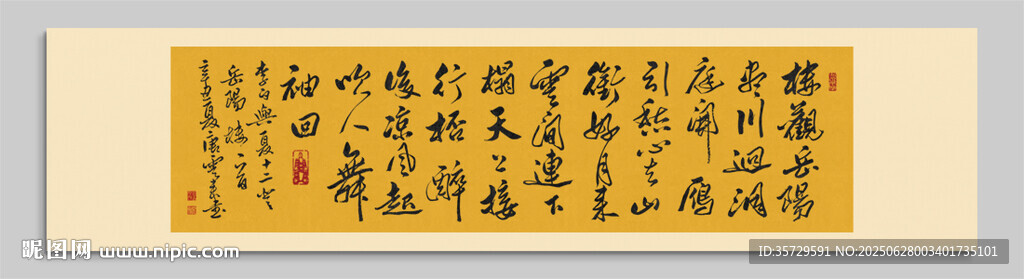 楼觀岳陽
尽川迴洞
庭開鴈
引愁心去山
銜好月来
雲間連下
榻天上接
行杯醉
後凉風起
吹人舞
袖回
李白與夏十二登
岳陽楼一首
辛丑夏唐雲書
昵图网 www.nipic.com
ID:35729591 NO:20250628003401735101